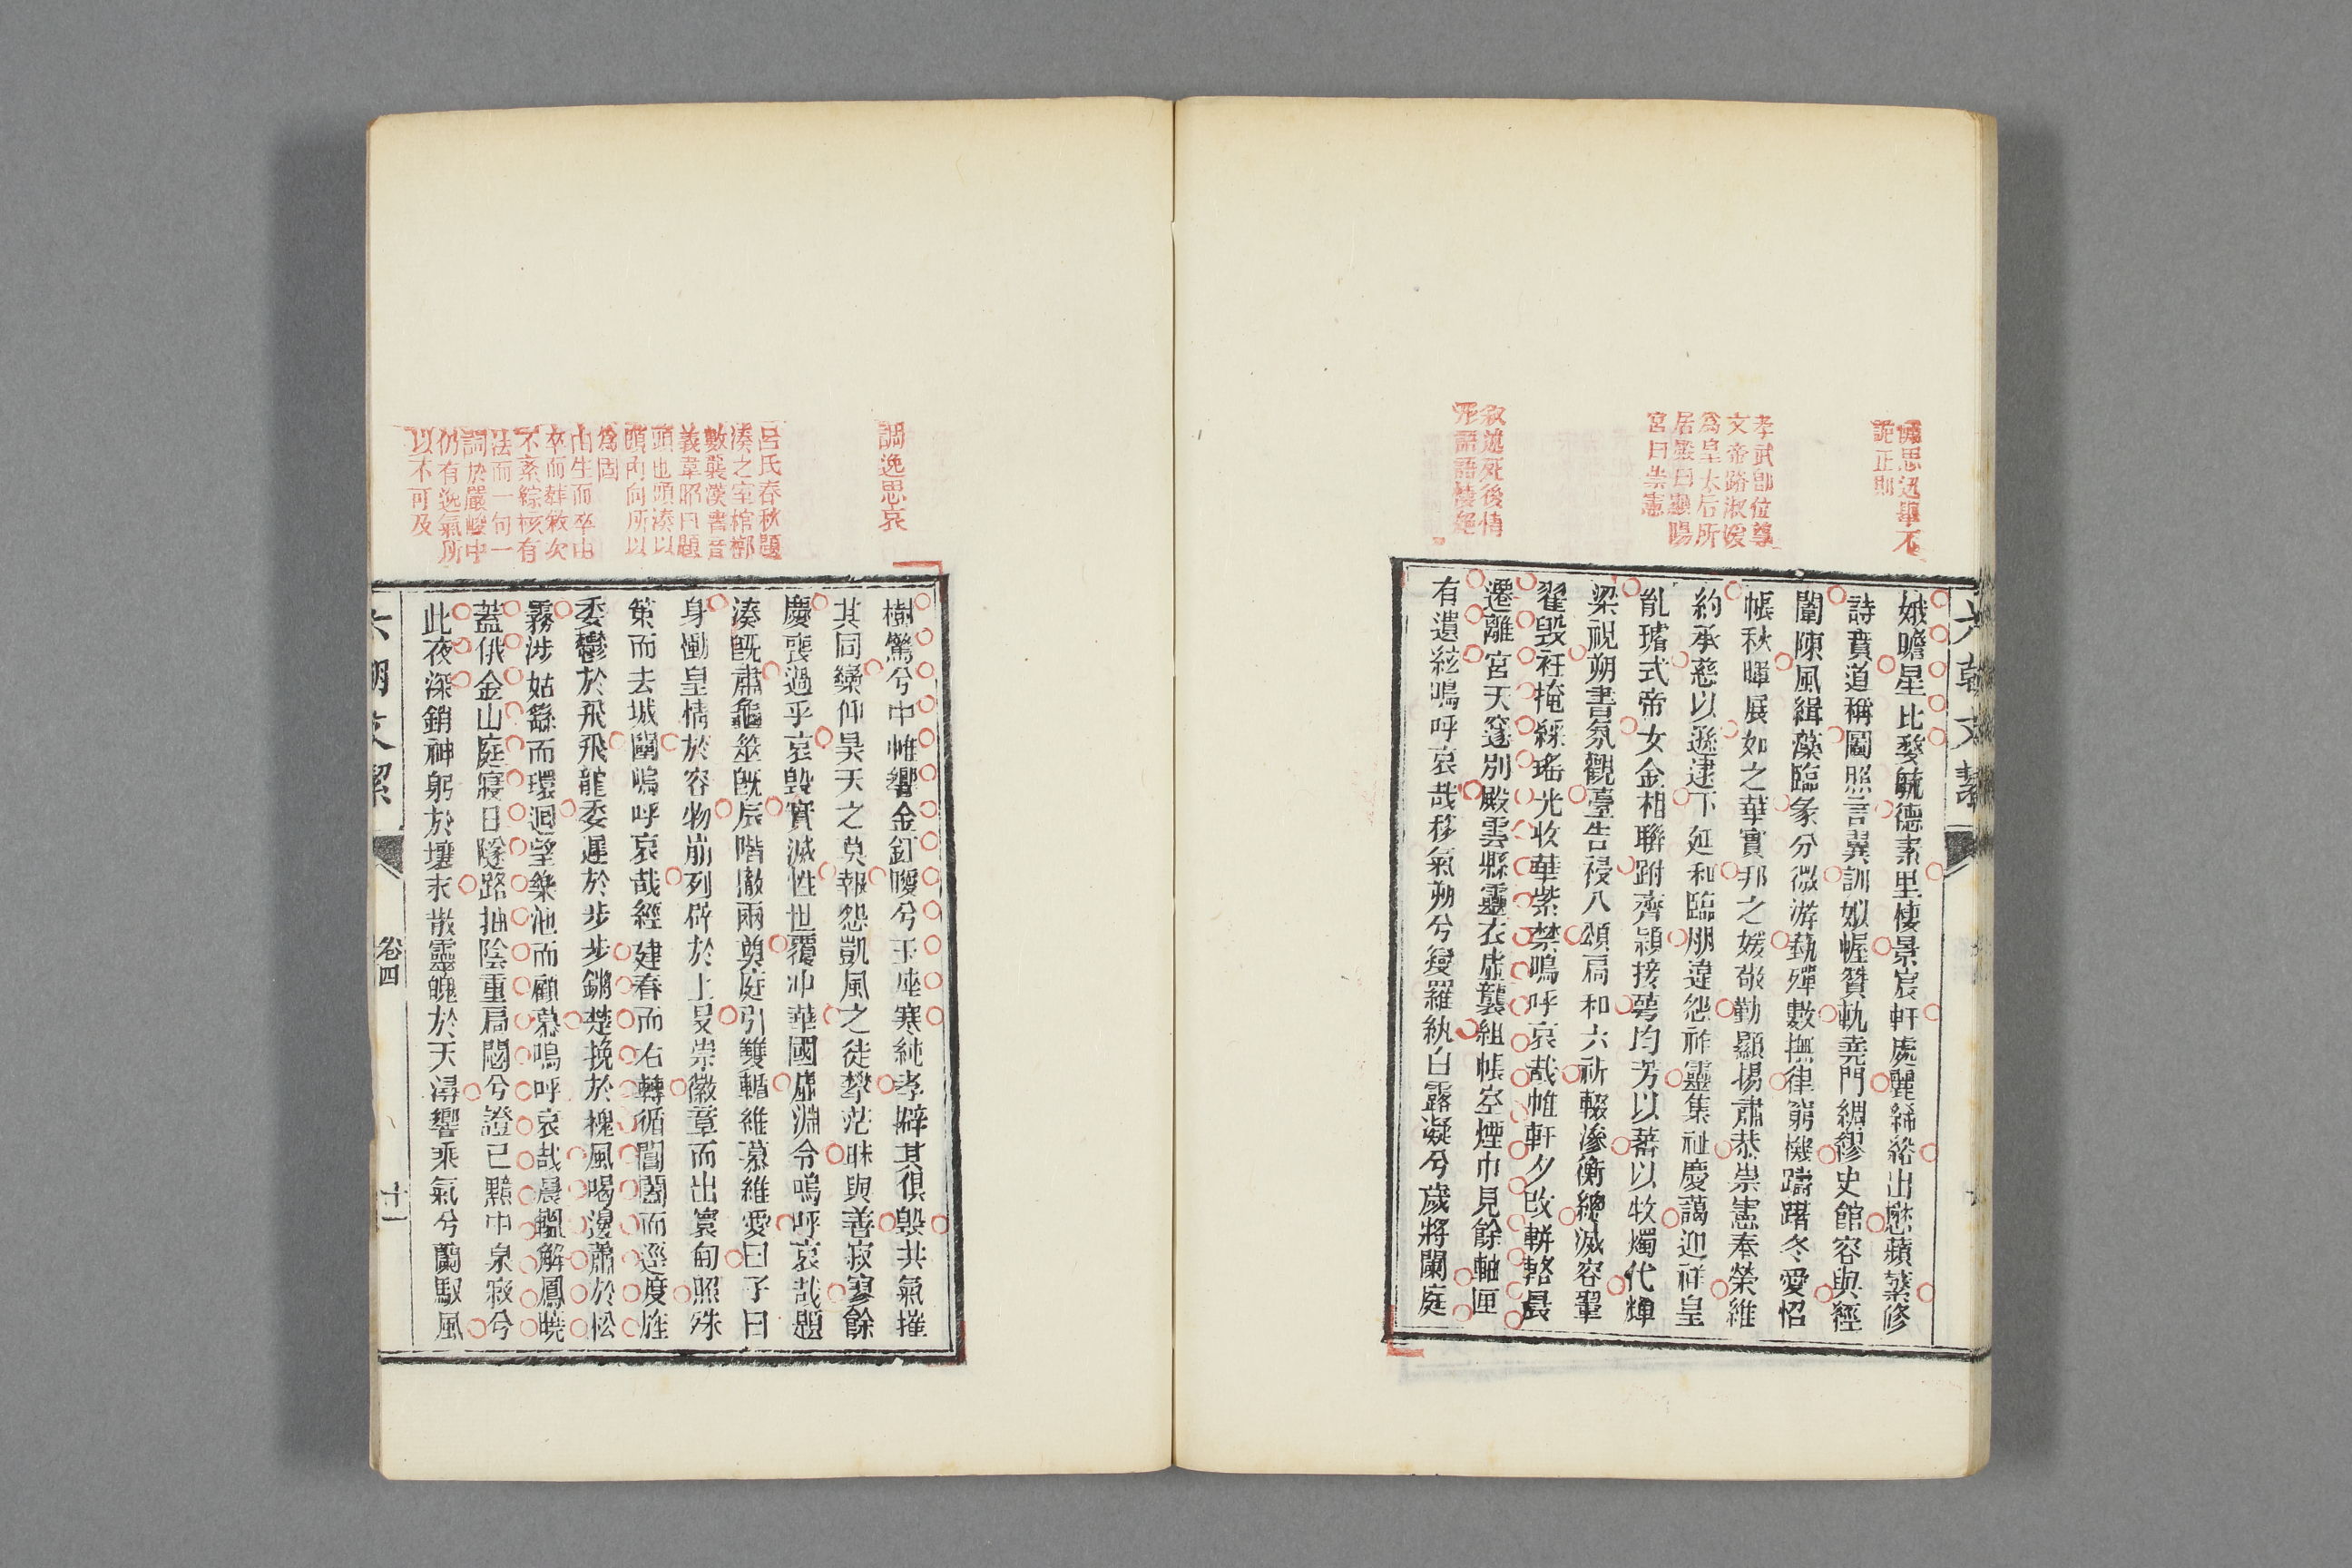 六朝文絜
思迅舉不
詭正則
孝武卽位尊
文帝路淑媛
爲皇太后所
居殿曰顯陽
宮曰崇憲
敘述死後情
形語語悽絕
娥瞻星比婺毓德素里棲景宸軒處麗絺綌出懋蘋蘩修
詩賁道稱圖照言翼訓姒幄贊軌堯門綢繆史館容與經
闈陳風緝藻臨彖分微游藝殫數撫律窮機躊躇冬愛怊
悵秋暉展如之華實邦之媛敬勤顯揚肅恭崇憲奉榮維
約承慈以遜逮下延和臨朋違怨祚靈集祉慶藹迎祥皇
胤璿式帝女金相聯跗齊穎接萼均芳以蕃以牧燭代輝
梁視朔書氛觀臺告祲八頌扃和六祈輟滲衡總滅容翬
翟毀衽掩綵瑤光收華紫禁嗚呼哀哉帷軒夕改輧輅晨
遷離宮天邃別殿雲縣靈衣虛襲組帳空煙巾見餘軸匣
有遺絃嗚呼哀哉移氣朔兮變羅紈白露凝兮歲將闌庭
調逸思哀
呂氏春秋題
湊之室棺槨
數襲漢書音
義韋昭曰題
頭也頭湊以
頭內向所以
爲固
由生而卒由
卒而葬敘次
不紊綜核有
法而一句一
詞於嚴峻中
仍有逸氣所
以不可及
樹驚兮中帷響金釭曖兮玉座寒純孝擗其俱毀共氣摧
其同欒仰昊天之莫報怨凱風之徒攀茫昧與善寂寥餘
慶喪過乎哀毀實滅性世覆沖華國虛淵令嗚呼哀哉題
湊旣肅龜筮旣辰階撤兩奠庭引雙輴維慕維愛曰子曰
身慟皇情於容物崩列辟於上旻崇徽章而出寰甸照殊
策而去城闉嗚呼哀哉經建春而右轉循閶闔而逕度旌
委鬱於飛飛龍委遲於步步鏘楚挽於槐風喝邊蕭於松
霧涉姑繇而環迴望樂池而顧慕嗚呼哀哉晨轀解鳳曉
蓋俄金山庭寢日隧路抽陰重扃閟兮證已黯中泉寂兮
此夜深銷神躬於壤末散靈魄於天潯響乘氣兮蘭馭風
六朝文絜
卷四
十一